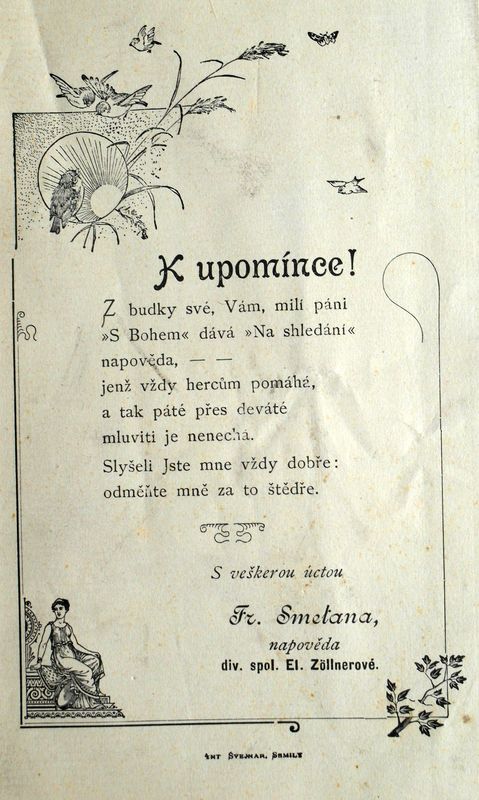 K upomínce!
Z budky své, Vám, milí páni
»S Bohem« dává »Na shledání«
napověda, — —
jenž vždy hercům pomáhá,
a tak páté přes deváté
mluviti je nenechá.
Slyšeli Jste mne vždy dobře:
odměňte mně za to štědře.
S veškerou úctou
Fr. Smetana,
napověda
div. spol. El. Zöllnerové.
ANT ŠVEJNAR, SEMILY